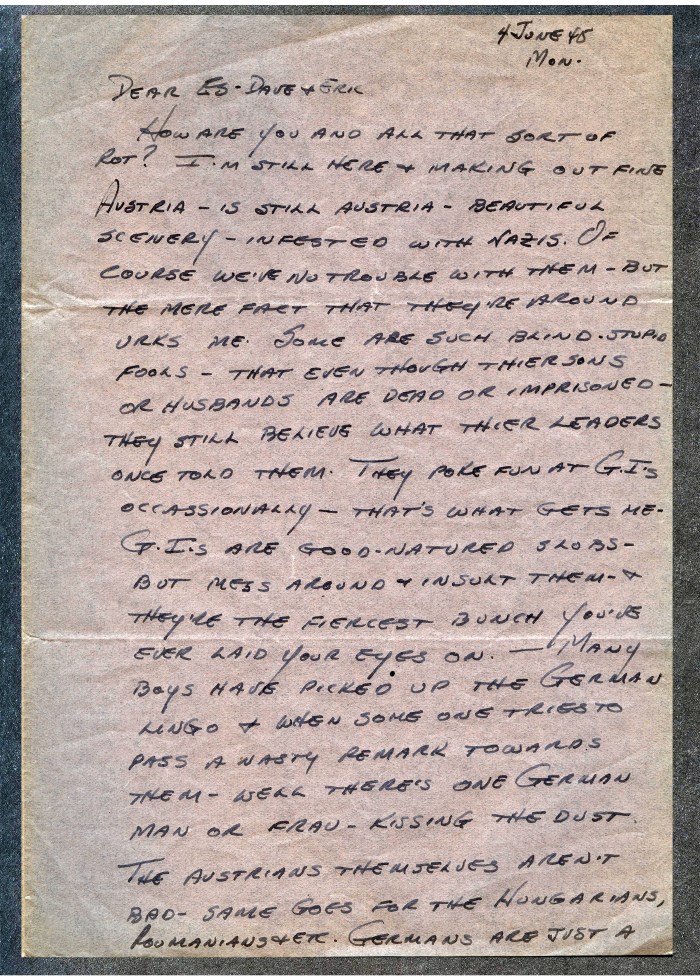 4 JUNE 45
MON.
DEAR ES-DAVE & ERIC
HOW ARE YOU AND ALL THAT SORT OF
ROT? I'M STILL HERE & MAKING OUT FINE
AUSTRIA - IS STILL AUSTRIA - BEAUTIFUL
SCENERY - INFESTED WITH NAZIS. OF
COURSE WE'VE NO TROUBLE WITH THEM - BUT
THE MERE FACT THAT THEY'RE AROUND
URKS ME. SOME ARE SUCH BLIND-STUPID
FOOLS - THAT EVEN THOUGH THIER SONS
OR HUSBANDS ARE DEAD OR IMPRISONED -
THEY STILL BELIEVE WHAT THIER LEADERS
ONCE TOLD THEM. THEY POKE FUN AT G.I.'S
OCCASSIONALLY - THAT'S WHAT GETS ME-
G.I.S ARE GOOD-NATURED SLOBS-
BUT MESS AROUND & INSULT THEM- &
THEY'RE THE FIERCEST BUNCH YOU'VE
EVER LAID YOUR EYES ON. - MANY
BOYS HAVE PICKED UP THE GERMAN
LINGO & WHEN SOME ONE TRIES TO
PASS A NASTY REMARK TOWARDS
THEM- WELL THERE'S ONE GERMAN
MAN OR FRAU - KISSING THE DUST.
THE AUSTRIANS THEMSELVES AREN'T
BAD- SAME GOES FOR THE HUNGARIANS,
ROUMANIANS & ETC. GERMANS ARE JUST A